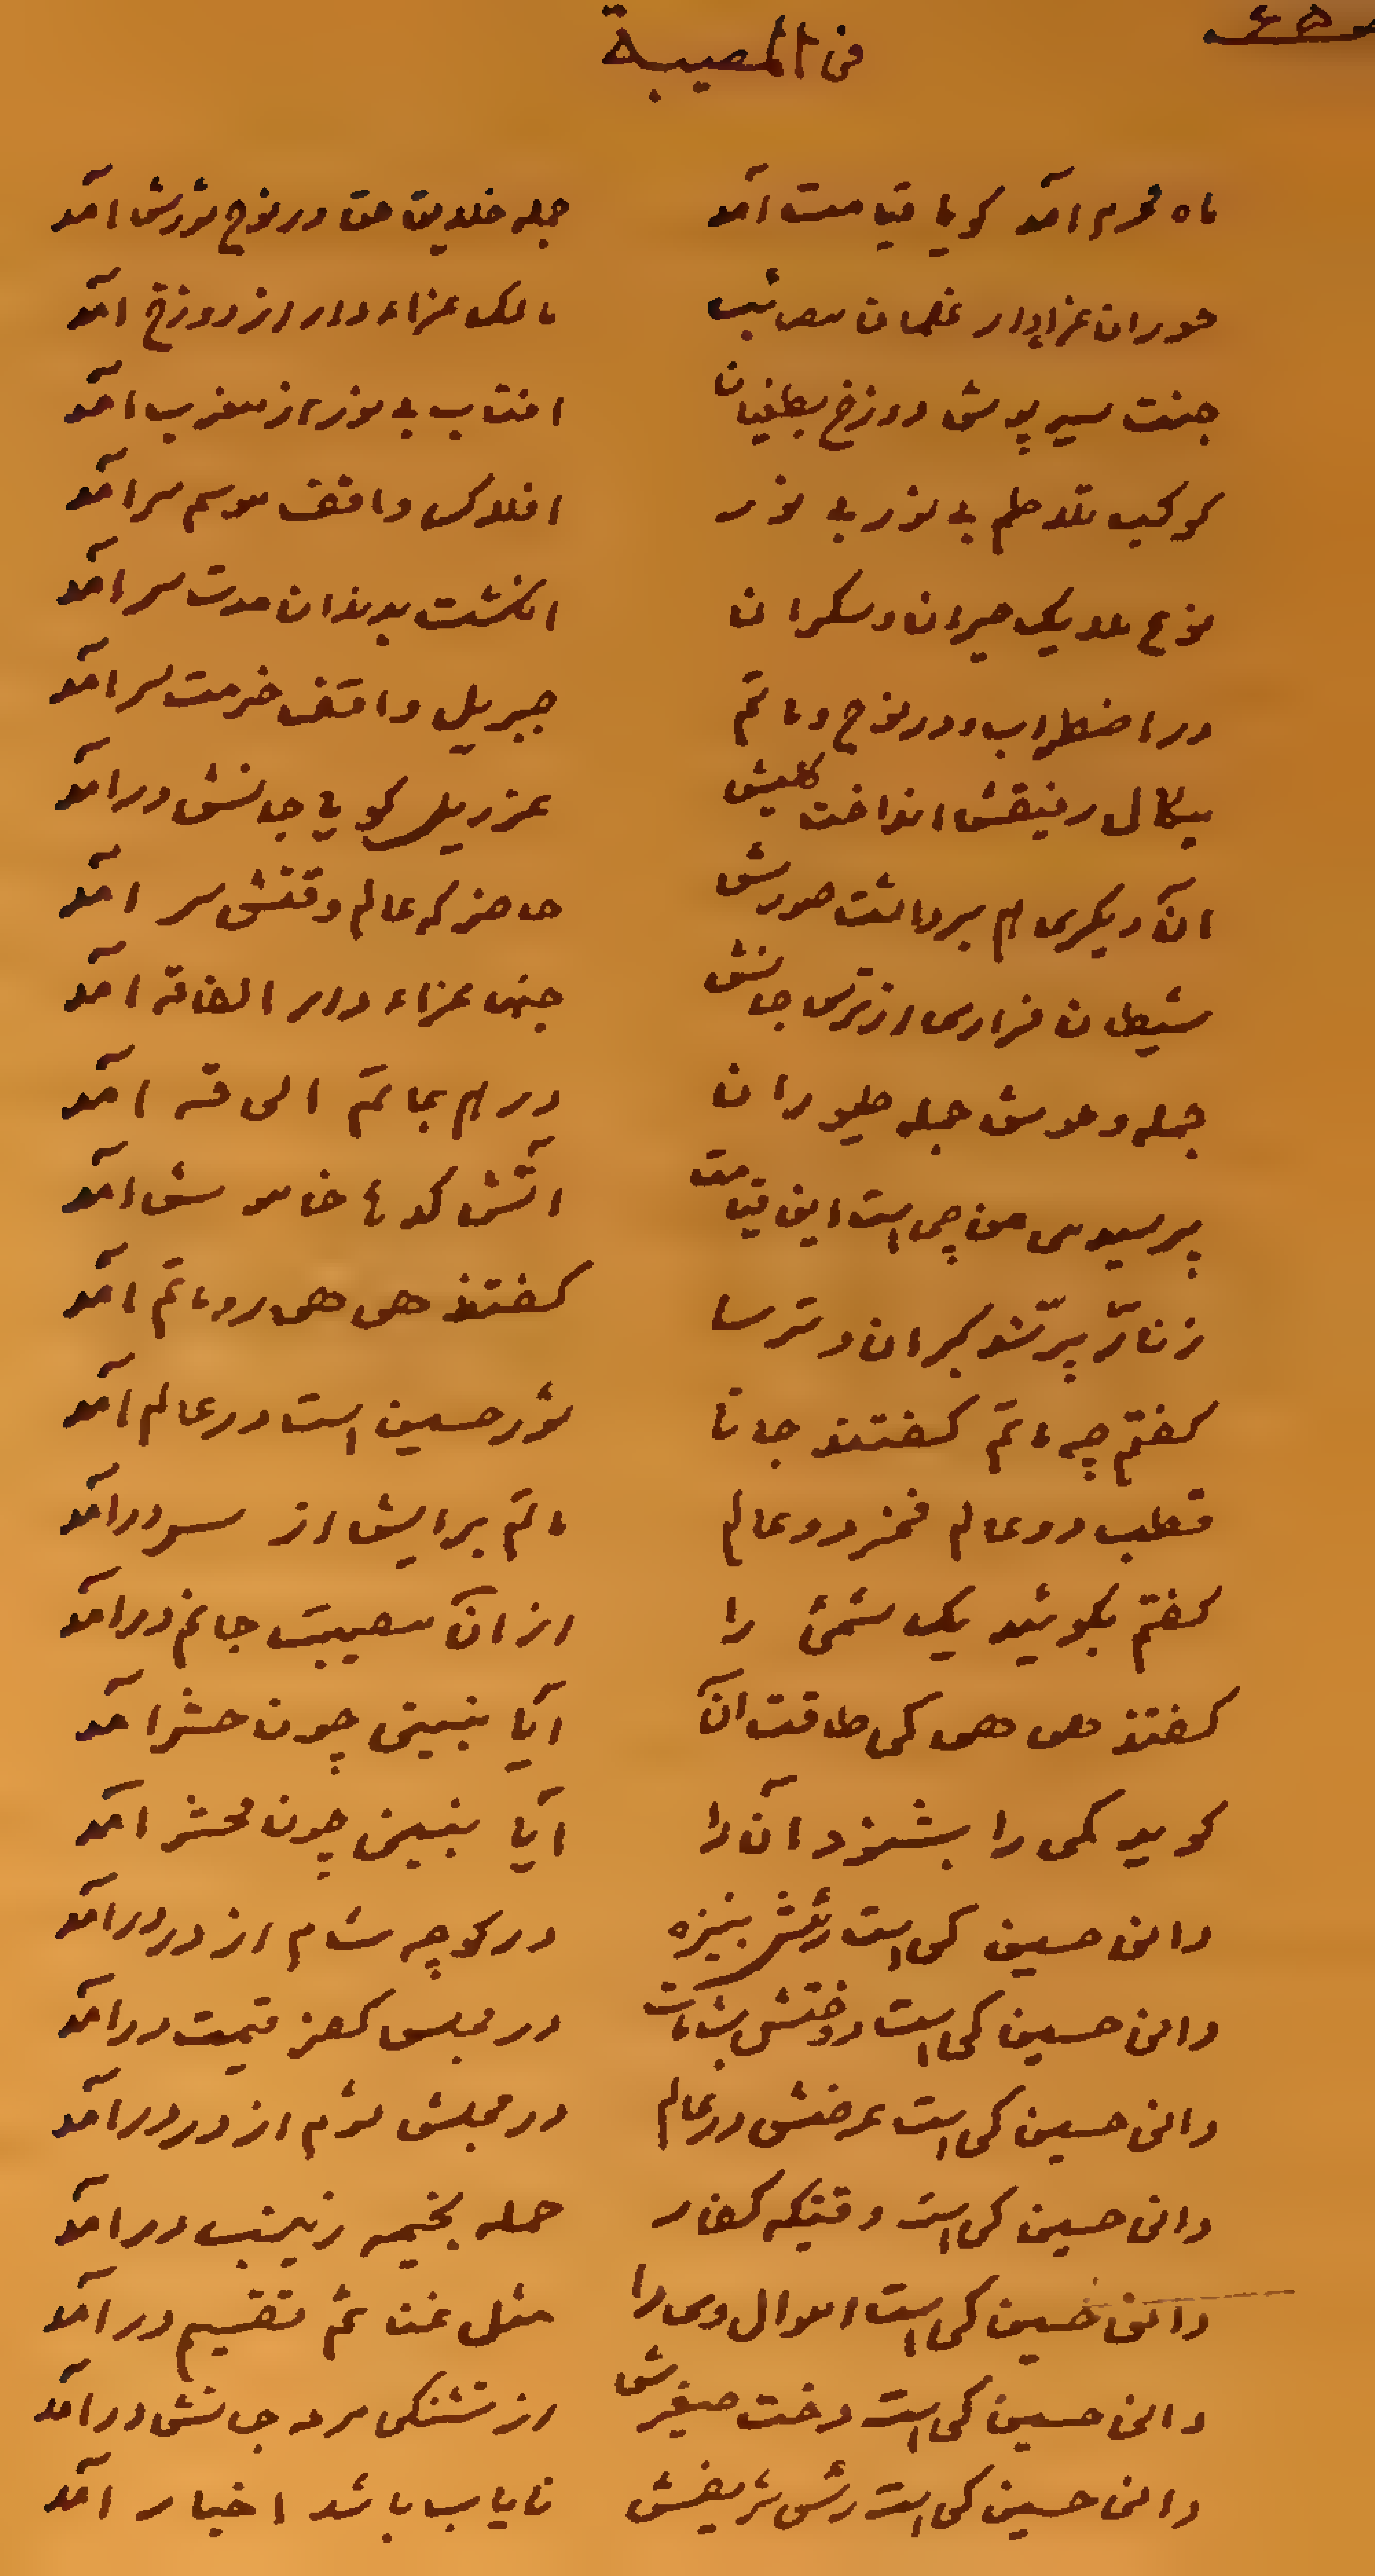 ۶۵
فی المصیبة
ماه محرم آمد کویا قیامت آمد جمله خلایق حق در نوح شورش آمد
حوران عزادار غلمان مصائب مالک عزاء دار از دوزخ آمد
جنت سیه پوش دوزخ بطغیان افتاب بی نور از مغرب آمد
کوکب تلاطم بی نور بی نور افلاکس واقف موسم سرامد
نوع ملایک حیران و سکران انکشت بدندان مدت سرامد
در اضطراب و در نوح و ماتم جبریل واقف خزمت سرامد
میکال رفیقش انداخت کلیش عزریل کویی جانش درامد
آن دیکری هم برداشت صورش حاضر که عالم وقتش سر آمد
شیطان فراری از ترس جانش جنی عزاء دار الفاقه آمد
جمله وحوش جمله طیوران درهم بماتم الی قه آمد
پرسیدمی من چی است این قیامت آتش کدها خاموش آمد
زنار پرشد کبران و ترسا کفتند هی هی روماتم آمد
کفتم چه ماتم کفتند جانا شور حسین است در عالم آمد
قطب دوعالم فخر دوعالم ماتم برایش از سر درامد
کفتم بکوئید یک شمئ را از آن مصیبت جانم درامد
کفتند هی هی کی طاقت آن آیا نبینی چون حشر آمد
کوید کمی را بشنود آن را آیا نبینی چون محشر آمد
دانی حسین کی است رئسش بنیزه در کوچه شام از در درامد
دانی حسین کی است دوختش بشامات در مجلس کفر قیمت درامد
دانی حسین کی است عرضش در عالم در مجلش شوم از در درامد
دانی حسین کی است وقتیکه کفار حمله بخیمه زینب درامد
دانی حسین کی است اموال وی را مثل غنائم تقسیم درامد
دانی حسین کی است دخت صیغرش از تشنکی مرد جانش درامد
دانی حسین کی است رئس شریفش نایاب باشد اخبار آمد